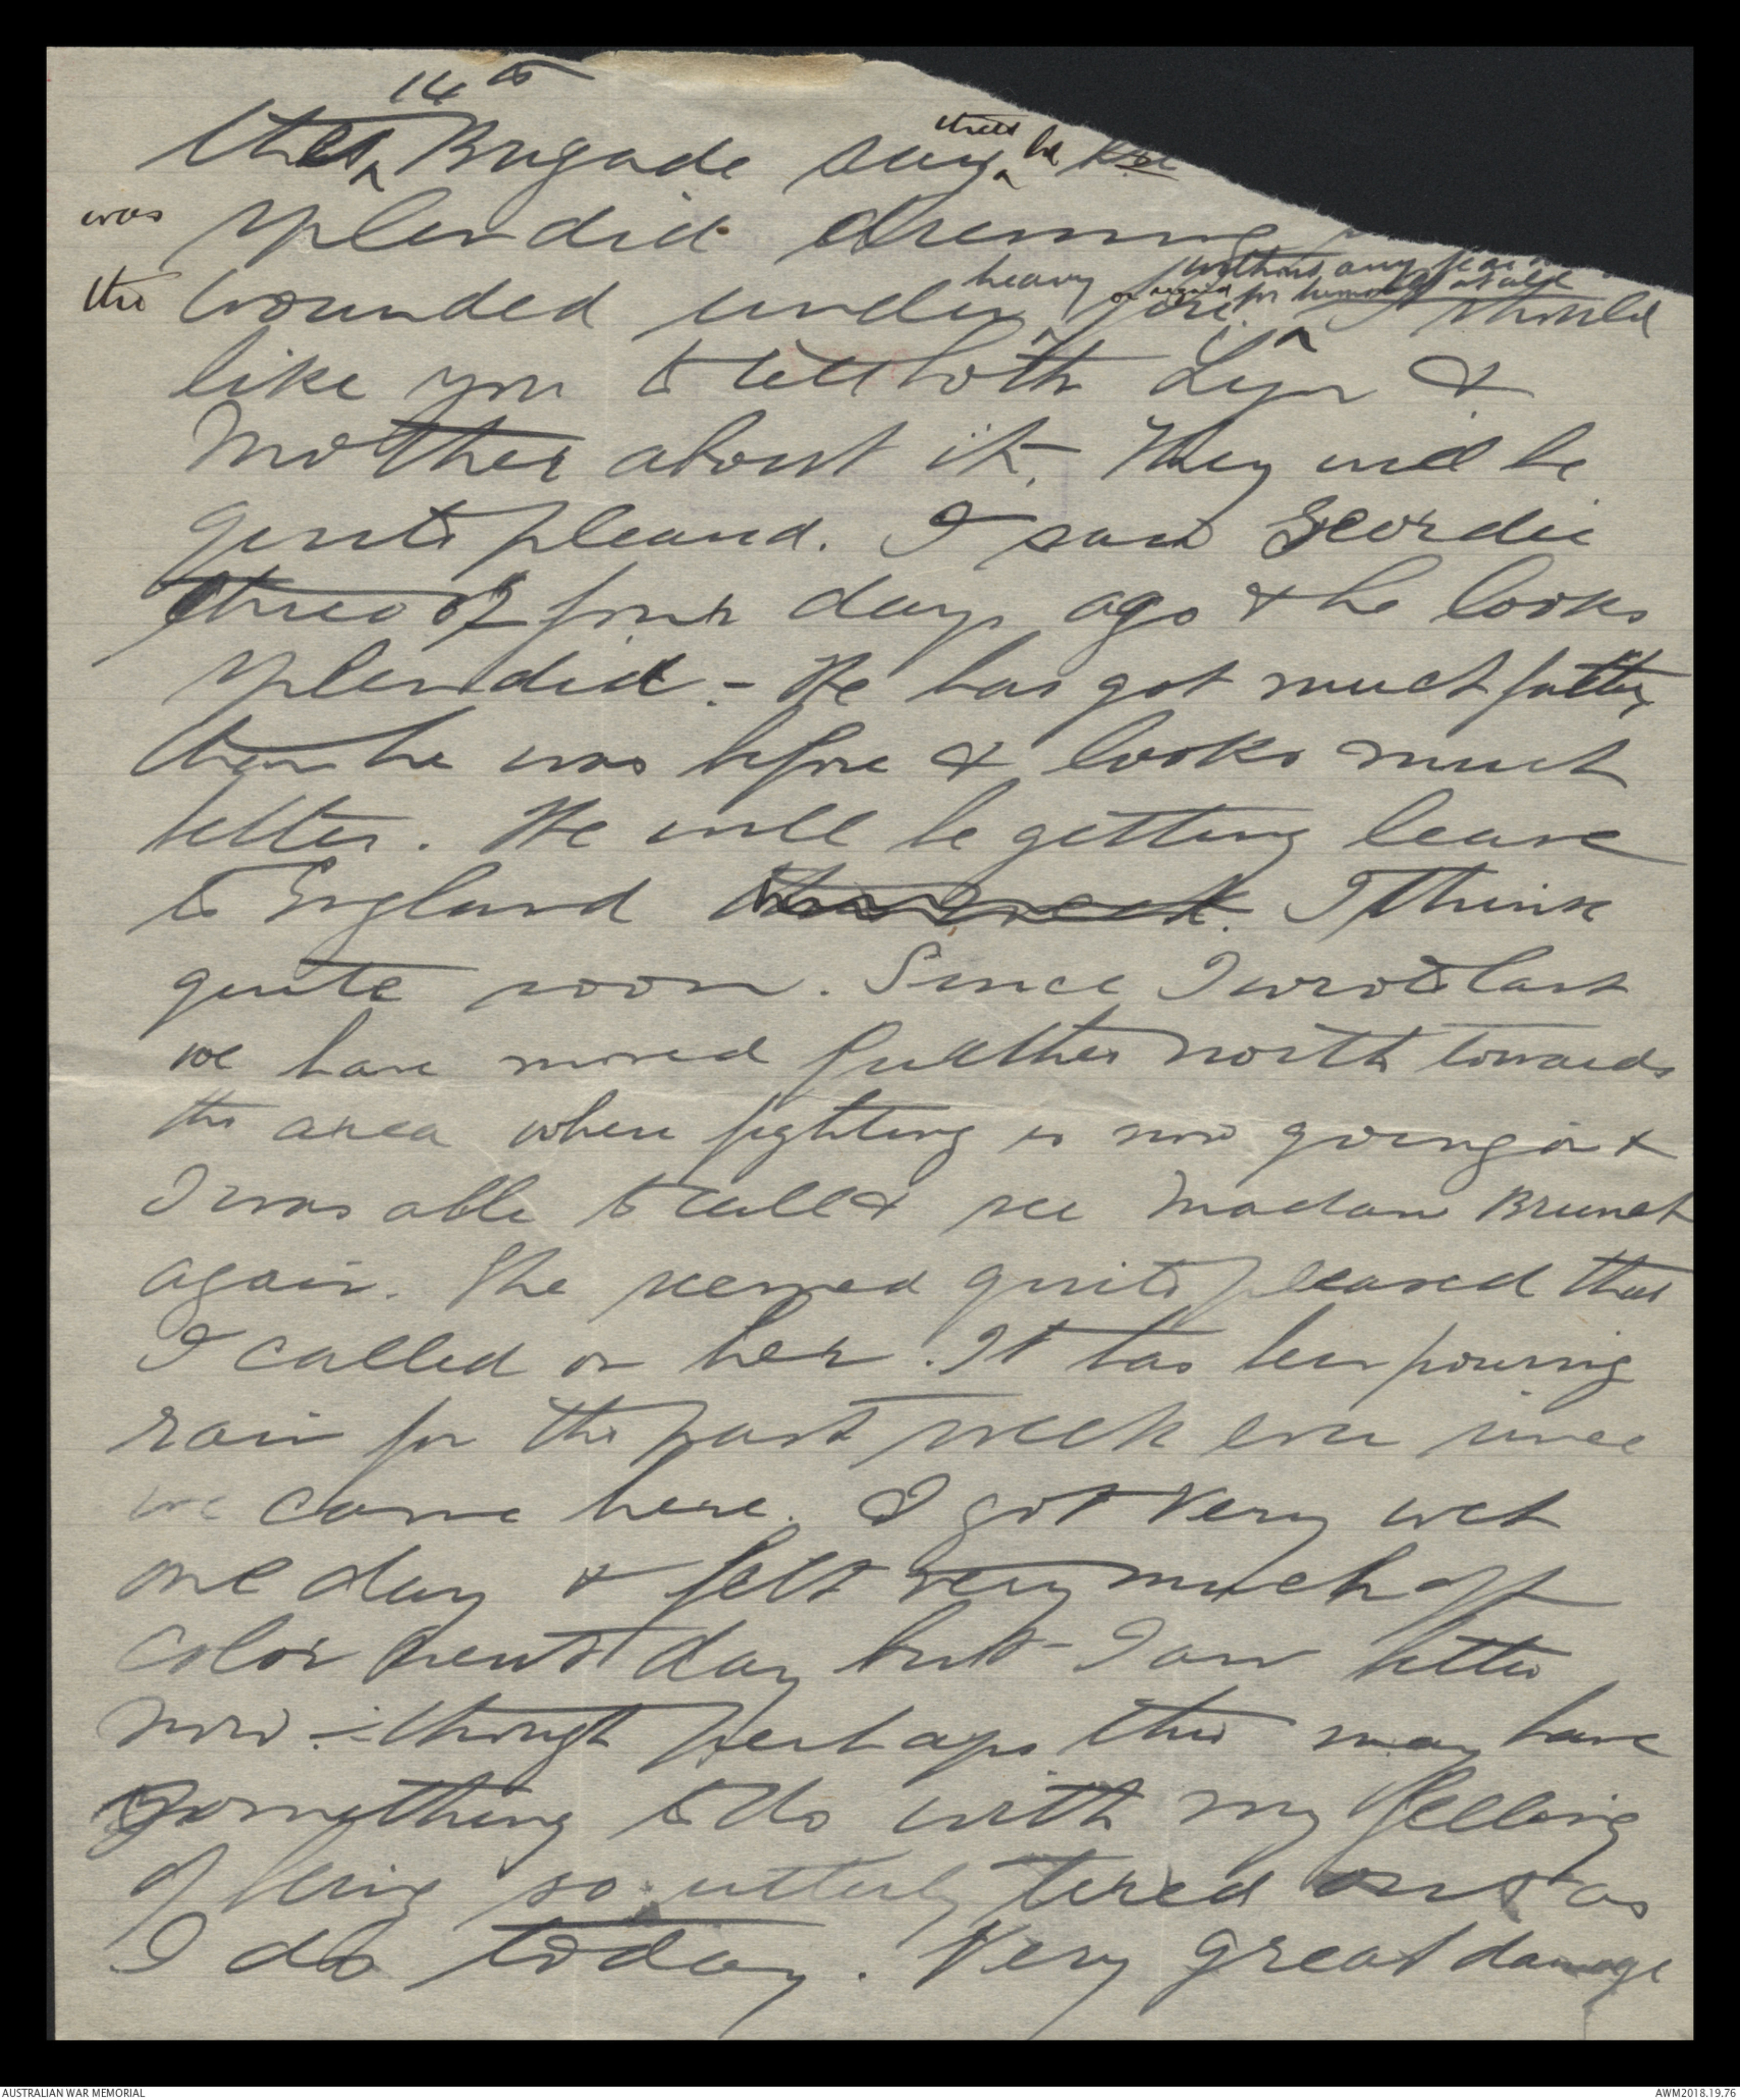 14th
the Brigade say that he
was splendid dressing
the wounded under heavy fire without any fear or regard for himself at all I should
like you to tell both Lyn &
Mother about it. They will be
quite pleased. I saw Geordie
three or four days ago & he looks
splendid. - He has got much fatter
than he was before & looks much
better. He will be getting leave
to England this week. I think
quite soon. Since I wrote last
we have moved further north towards
the area where fighting is now going on &
I was able to call & see Madam Brunet
again. She seemed quite pleased that
I called on her. It has been pouring
rain for the past week ever since
we came here. I got very wet
one day & felt very much off
color next day but I am better
now - though perhaps this may have
something to do with my feeling
of being so utterly tired out as
I do today. Very great damage
AUSTRALIAN WAR MEMORIAL
AWM2018.19.76